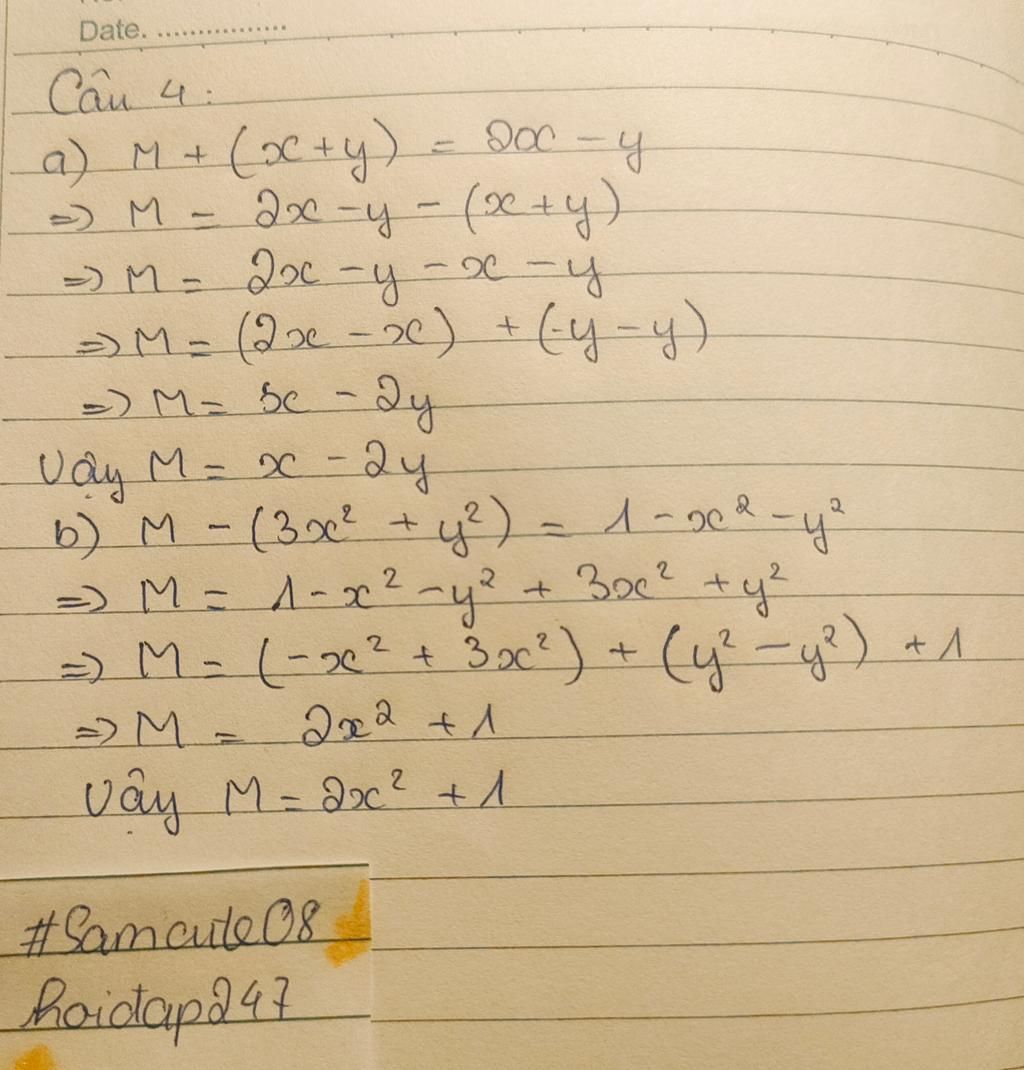 Date. ................
Câu 4 :
a) M + (x + y) = 2x - y
=> M = 2x - y - (x + y)
=> M = 2x - y - x - y
=> M = (2x - x) + (-y - y)
=> M = x - 2y
Vậy M = x - 2y
b) M - (3x² + y²) = 1 - x² - y²
=> M = 1 - x² - y² + 3x² + y²
=> M = (-x² + 3x²) + (y² - y²) + 1
=> M = 2x² + 1
Vậy M = 2x² + 1
#Samcute08
hoidap247